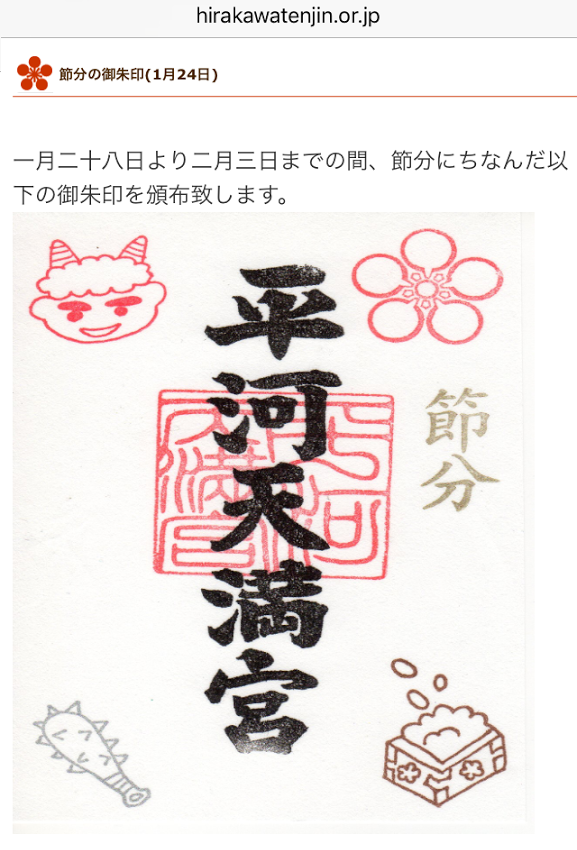 hirakawatenjin.or.jp
節分の御朱印(1月24日)
一月二十八日より二月三日までの間、節分にちなんだ以
下の御朱印を頒布致します。
平河天満宮
節分